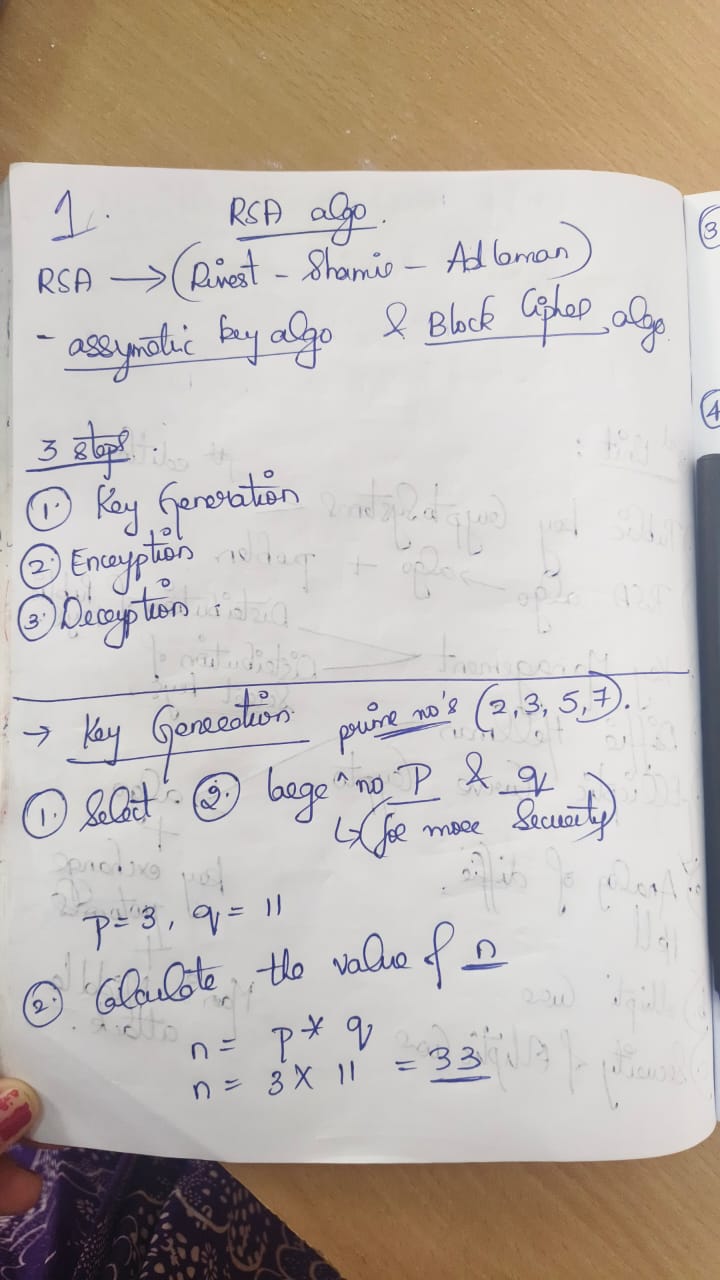 1.
RSA algo.
RSA → (Rivest - Shamir - Adleman)
- assymotric key algo & Block Cipher algo.
3 steps :
① Key Generation
② Encryption
③ Decryption :
→ Key Generation prime no's (2, 3, 5, 7).
① Select ② large ^ no P & q
↳ (for more Security)
P = 3, q = 11
② Calculate the value of n
n = P * q
n = 3 X 11 = 33
3
4